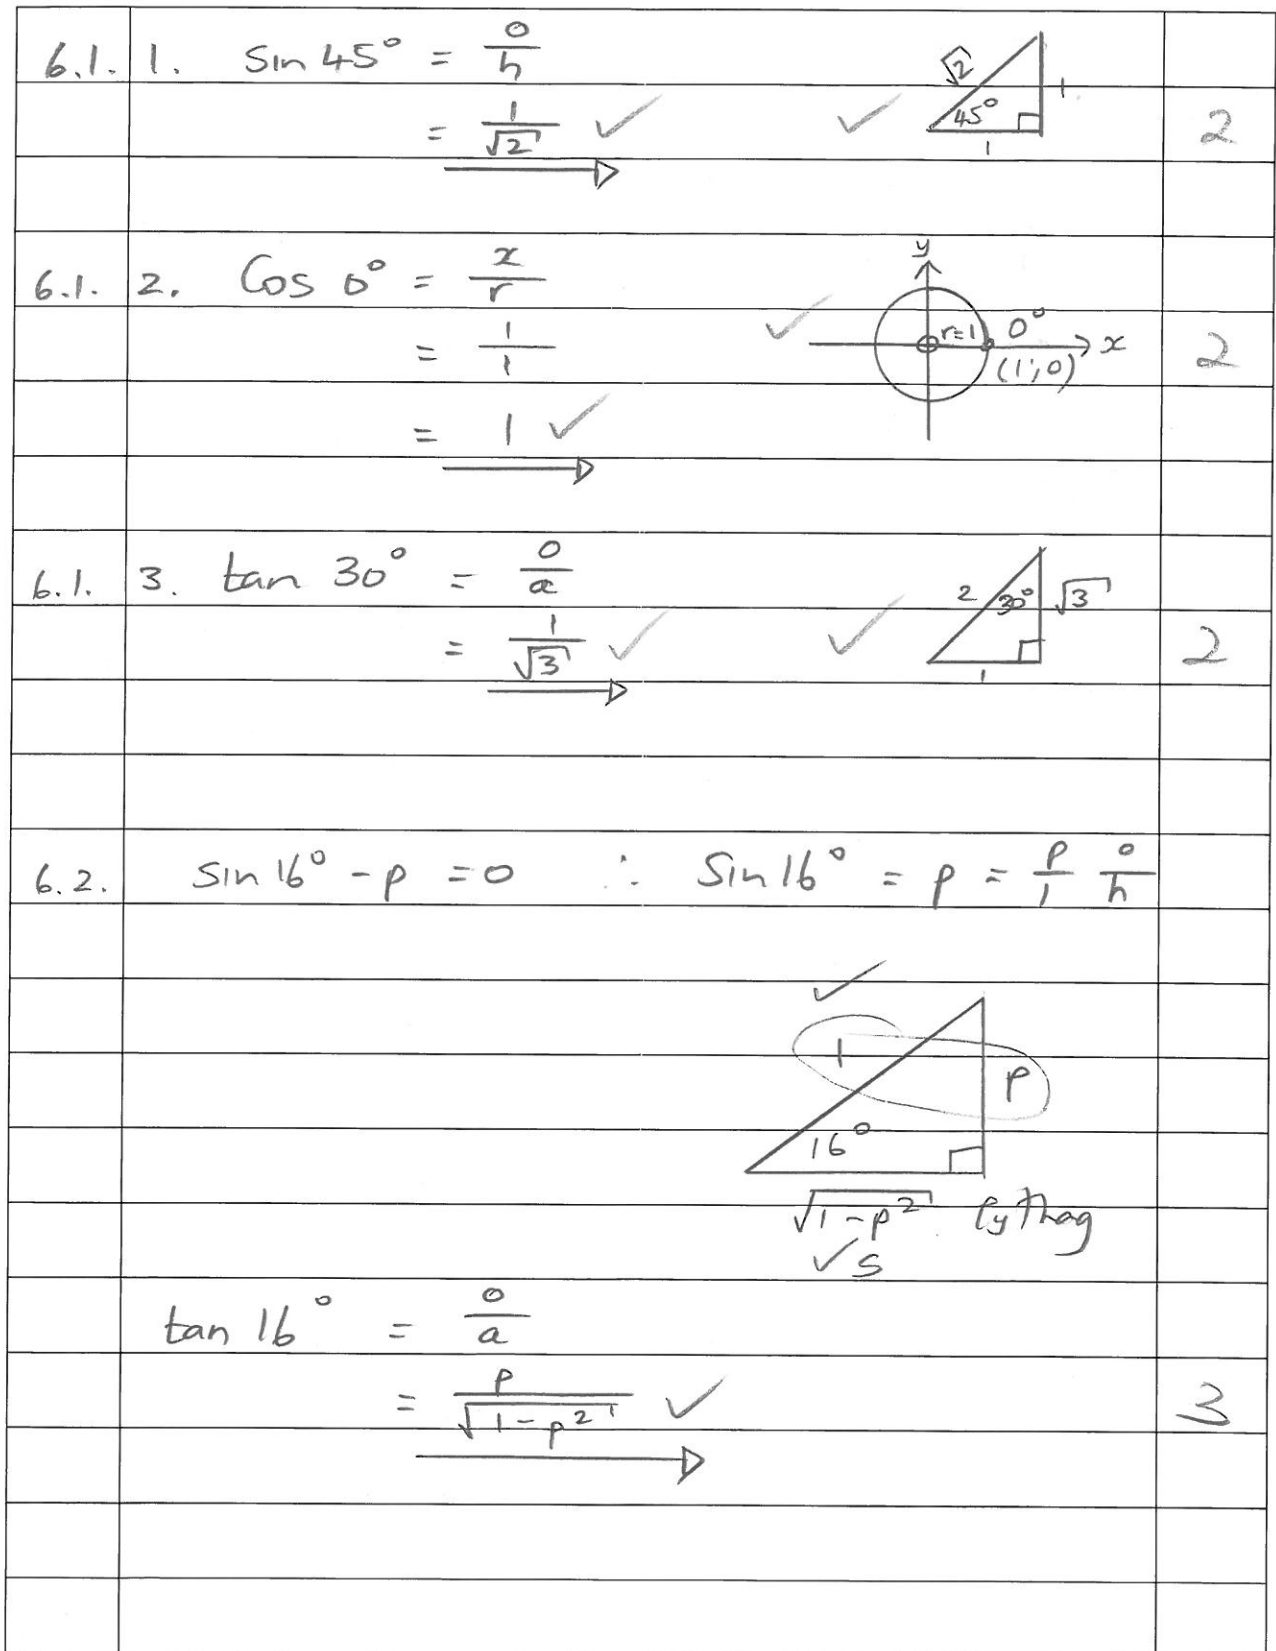 6.1. 1. Sin 45° = o/h
√2 45° 1 1
= 1/√2 ✓ ✓ 2
6.1. 2. Cos 0° = x/r
y r=1 0° x (1;0)
= 1/1 ✓ 2
= 1 ✓
6.1. 3. tan 30° = o/a
2 30° √3 1
= 1/√3 ✓ ✓ 2
6.2. Sin 16° - p = 0 ∴ Sin 16° = p = p/1 o/h
✓
1 p
16°
√1-p² Pythag
✓ S
tan 16° = o/a
= p/√1-p² ✓ 3